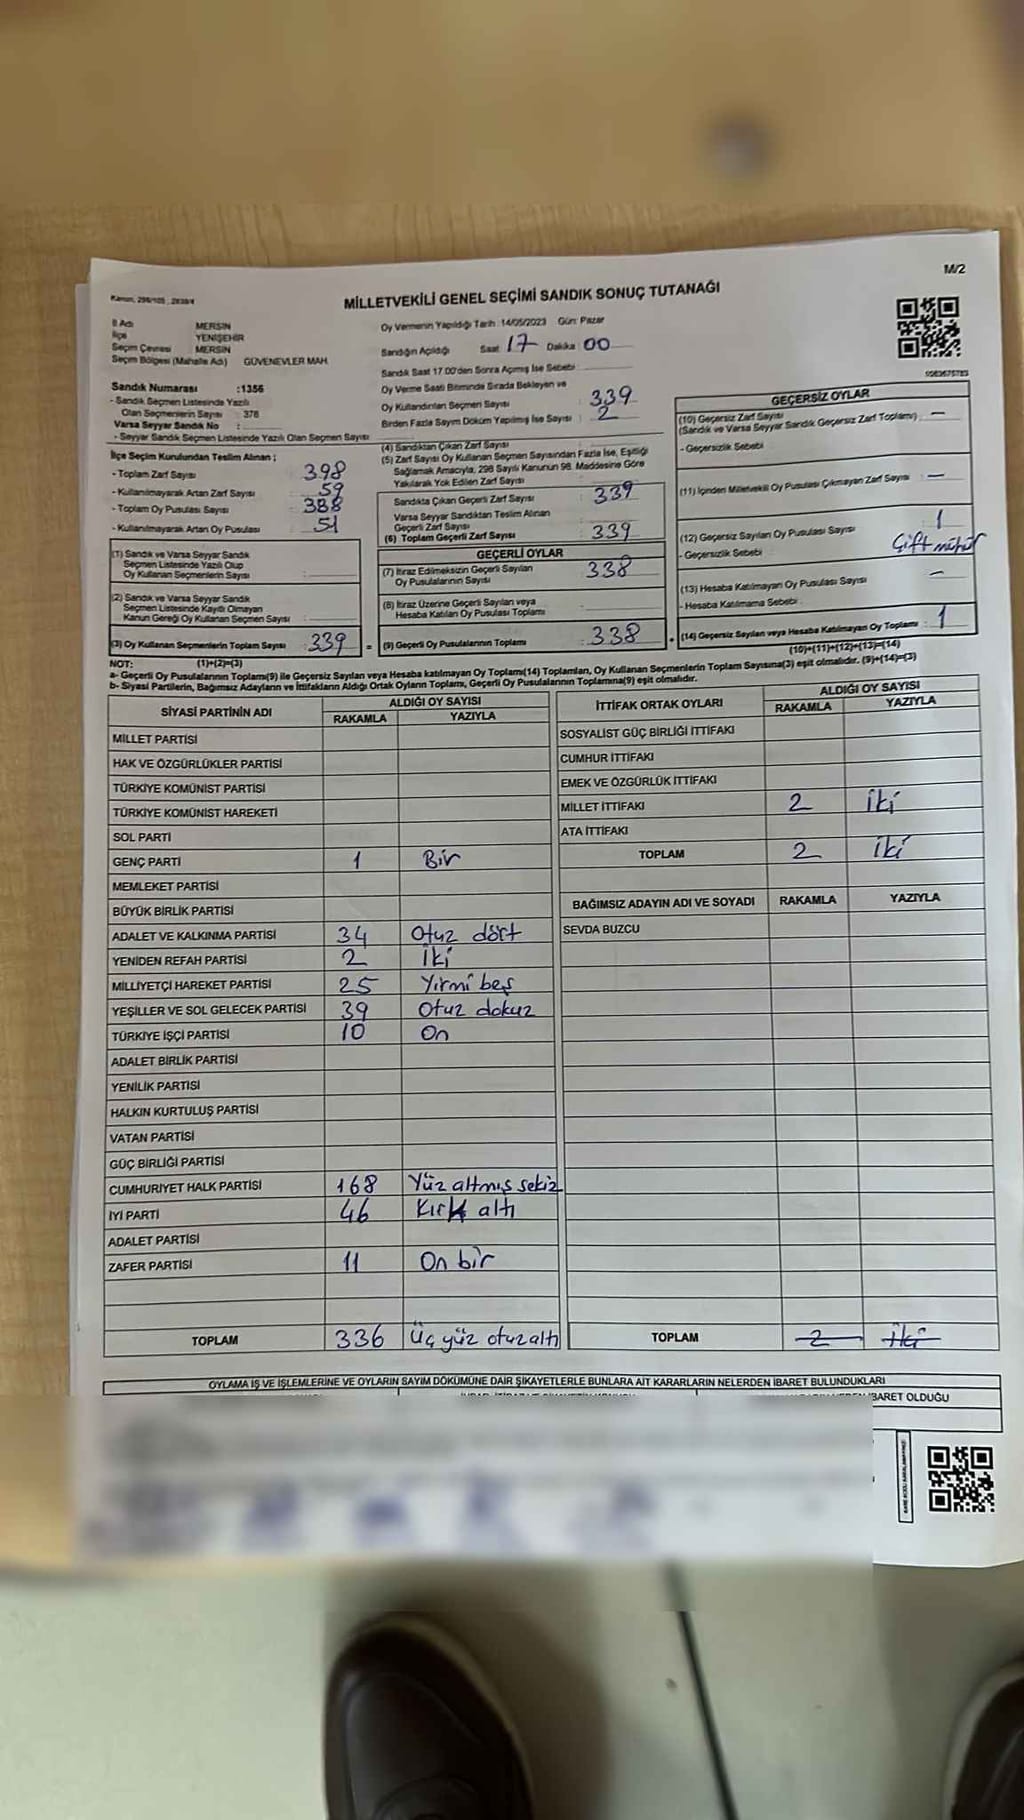 M/2
Kanun, 298/105 ; 2839/4
MİLLETVEKİLİ GENEL SEÇİMİ SANDIK SONUÇ TUTANAĞI
İl Adı MERSİN
İlçe YENİŞEHİR
Seçim Çevresi MERSİN
Seçim Bölgesi (Mahalle Adı) GÜVENEVLER MAH.
Sandık Numarası :1356
- Sandık Seçmen Listesinde Yazılı
Olan Seçmenlerin Sayısı : 378
Varsa Seyyar Sandık No :
- Seyyar Sandık Seçmen Listesinde Yazılı Olan Seçmen Sayısı
Oy Vermenin Yapıldığı Tarih :14/05/2023 Gün: Pazar
Sandığın Açıldığı Saat 17 Dakika 00
Sandık Saat 17.00'den Sonra Açımış İse Sebebi :
Oy Verme Saati Bitiminde Sırada Bekleyen ve
Oy Kullandırılan Seçmen Sayısı : 339
Birden Fazla Sayım Döküm Yapılmış İse Sayısı : 2
İlçe Seçim Kurulundan Teslim Alınan ;
- Toplam Zarf Sayısı 398
- Kullanılmayarak Artan Zarf Sayısı 59
- Toplam Oy Pusulası Sayısı 388
- Kullanılmayarak Artan Oy Pusulası 51
(1) Sandık ve Varsa Seyyar Sandık
Seçmen Listesinde Yazılı Olup
Oy Kullanan Seçmenlerin Sayısı :
(2) Sandık ve Varsa Seyyar Sandık
Seçmen Listesinde Kayıtlı Olmayan
Kanun Gereği Oy Kullanan Seçmen Sayısı :
(3) Oy Kullanan Seçmenlerin Toplam Sayısı : 339 =
(4) Sandıktan Çıkan Zarf Sayısı
(5) Zarf Sayısı Oy Kullanan Seçmen Sayısından Fazla İse, Eşitliği
Sağlamak Amacıyla, 298 Sayılı Kanunun 98. Maddesine Göre
Yakılarak Yok Edilen Zarf Sayısı :
Sandıkta Çıkan Geçerli Zarf Sayısı : 339
Varsa Seyyar Sandıktan Teslim Alınan
Geçerli Zarf Sayısı
(6) Toplam Geçerli Zarf Sayısı : 339
GEÇERLİ OYLAR
(7) İtiraz Edilmeksizin Geçerli Sayılan
Oy Pusulalarının Sayısı : 338
(8) İtiraz Üzerine Geçerli Sayılan veya
Hesaba Katılan Oy Pusulası Toplamı :
(9) Geçerli Oy Pusulalarının Toplamı : 338 +
GEÇERSİZ OYLAR
(10) Geçersiz Zarf Sayısı
(Sandık ve Varsa Seyyar Sandık Geçersiz Zarf Toplamı) : —
- Geçersizlik Sebebi
(11) İçinden Milletvekili Oy Pusulası Çıkmayan Zarf Sayısı : —
(12) Geçersiz Sayılan Oy Pusulası Sayısı : 1
- Geçersizlik Sebebi : Çift mühür
(13) Hesaba Katılmayan Oy Pusulası Sayısı : —
- Hesaba Katılmama Sebebi :
(14) Geçersiz Sayılan veya Hesaba Katılmayan Oy Toplamı : 1
(10)+(11)+(12)+(13)=(14)
NOT: (1)+(2)=(3)
a- Geçerli Oy Pusulalarının Toplamı(9) ile Geçersiz Sayılan veya Hesaba katılmayan Oy Toplamı(14) Toplamları, Oy Kullanan Seçmenlerin Toplam Sayısına(3) eşit olmalıdır. (9)+(14)=(3)
b- Siyasi Partilerin, Bağımsız Adayların ve İttifakların Aldığı Ortak Oyların Toplamı, Geçerli Oy Pusulalarının Toplamına(9) eşit olmalıdır.
SİYASİ PARTİNİN ADI ALDIĞI OY SAYISI
RAKAMLA YAZIYLA
MİLLET PARTİSİ
HAK VE ÖZGÜRLÜKLER PARTİSİ
TÜRKİYE KOMÜNİST PARTİSİ
TÜRKİYE KOMÜNİST HAREKETİ
SOL PARTİ
GENÇ PARTİ 1 Bir
MEMLEKET PARTİSİ
BÜYÜK BİRLİK PARTİSİ
ADALET VE KALKINMA PARTİSİ 34 Otuz dört
YENİDEN REFAH PARTİSİ 2 İki
MİLLİYETÇİ HAREKET PARTİSİ 25 Yirmi beş
YEŞİLLER VE SOL GELECEK PARTİSİ 39 Otuz dokuz
TÜRKİYE İŞÇİ PARTİSİ 10 On
ADALET BİRLİK PARTİSİ
YENİLİK PARTİSİ
HALKIN KURTULUŞ PARTİSİ
VATAN PARTİSİ
GÜÇ BİRLİĞİ PARTİSİ
CUMHURİYET HALK PARTİSİ 168 Yüz altmış sekiz
İYİ PARTİ 46 Kırk altı
ADALET PARTİSİ
ZAFER PARTİSİ 11 On bir
TOPLAM 336 Üç yüz otuz altı
İTTİFAK ORTAK OYLARI ALDIĞI OY SAYISI
RAKAMLA YAZIYLA
SOSYALİST GÜÇ BİRLİĞİ İTTİFAKI
CUMHUR İTTİFAKI
EMEK VE ÖZGÜRLÜK İTTİFAKI
MİLLET İTTİFAKI 2 İki
ATA İTTİFAKI
TOPLAM 2 İki
BAĞIMSIZ ADAYIN ADI VE SOYADI RAKAMLA YAZIYLA
SEVDA BUZCU
TOPLAM 2 İki
OYLAMA İŞ VE İŞLEMLERİNE VE OYLARIN SAYIM DÖKÜMÜNE DAİR ŞİKAYETLERLE BUNLARA AİT KARARLARIN NELERDEN İBARET BULUNDUKLARI
İBARET OLDUĞU